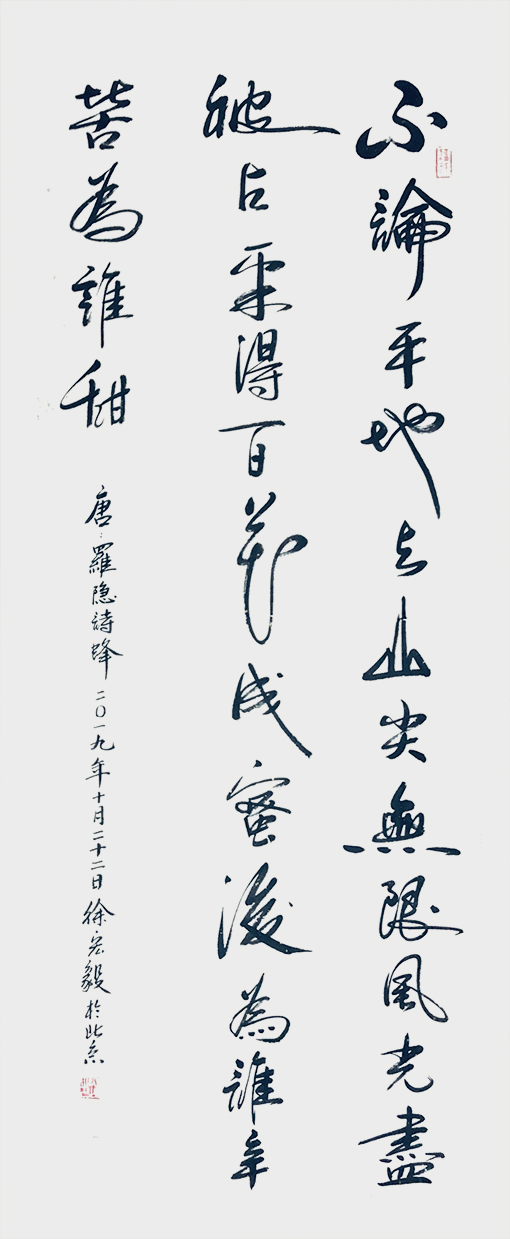 不論平地与山尖無限風光盡
被占采得百花成蜜後為誰辛
苦為誰甜
唐：羅隐詩蜂 二〇一九年十月二十二日徐宏毅於北京